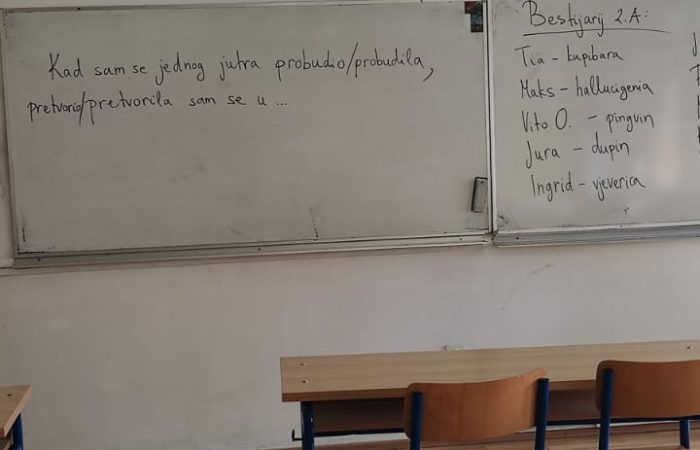 Kad sam se jednog jutra probudio/probudila,
pretvorio/pretvorila sam se u ...
Bestijarij 2.A:
Tia - kapibara
Maks - hallucigenia
Vito O. - pingvin
Jura - dupin
Ingrid - vjeverica